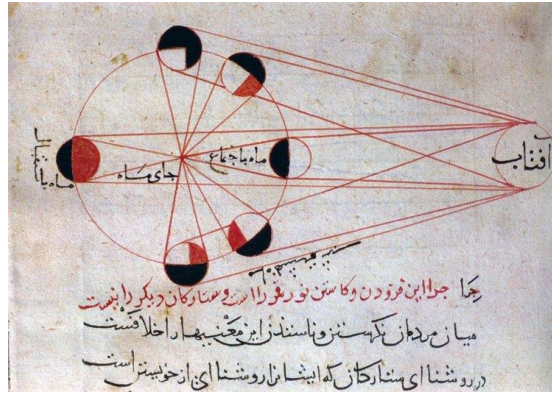 افتاب
ماه باجتماع
جای ماه
ماه باستقبال
جرا این فزودن وکاستن نور قمر را است وستارکان دیکر را نیست
میان مردمان نکرستن این معنیها را خلافست
در روشنا ای ستارکان که ایشانرا روشنا ای از خویشتن است